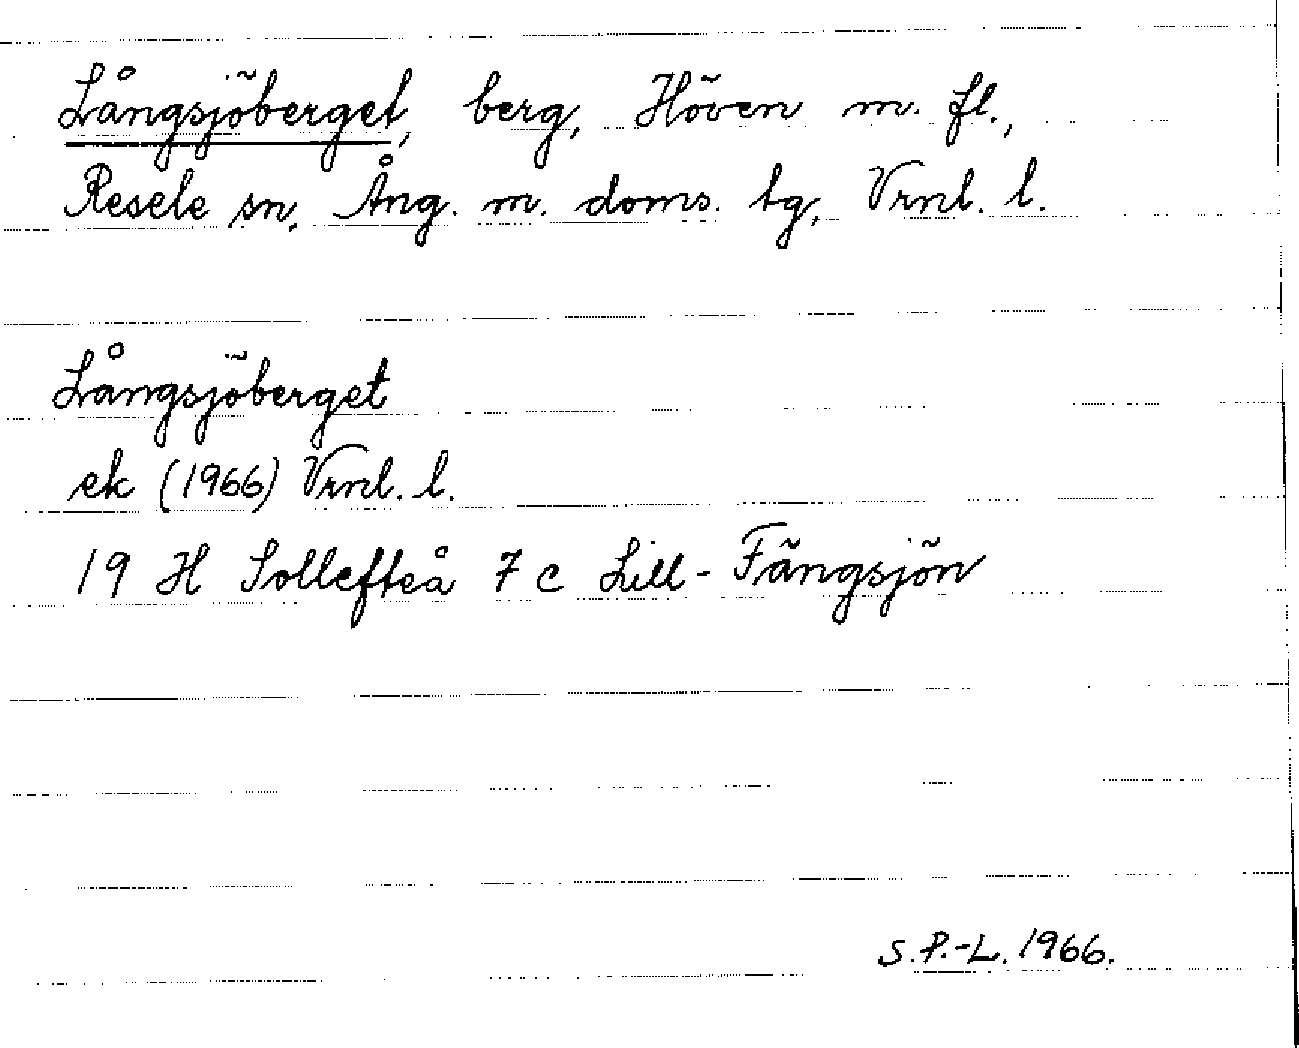 Långsjöberget, berg, Höven m. fl.,
Resele sn, Ång. m. doms. tg, Vrnl. l.
Långsjöberget
ek (1966) Vrnl. l.
19 H Sollefteå 7 c Lill-Fängsjön
S.P.-L. 1966.